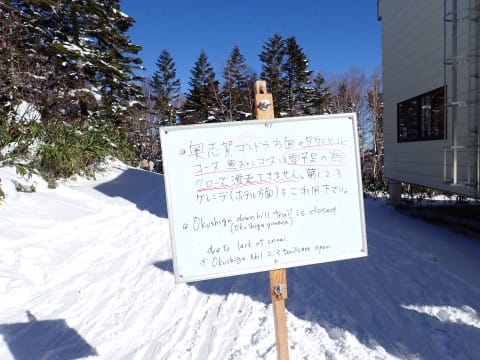 奥志賀ゴンドラ方面のダウンヒル
コース 奥志賀コースは雪不足の為
クローズ滑走できません。第1.2.3
ゲレンデ(ホテル方面)をご利用下さい。
Okushiga downhill trail is closed
(Okushiga gondola)
due to lack of snow.
Okushiga No1.2.3 trails are open